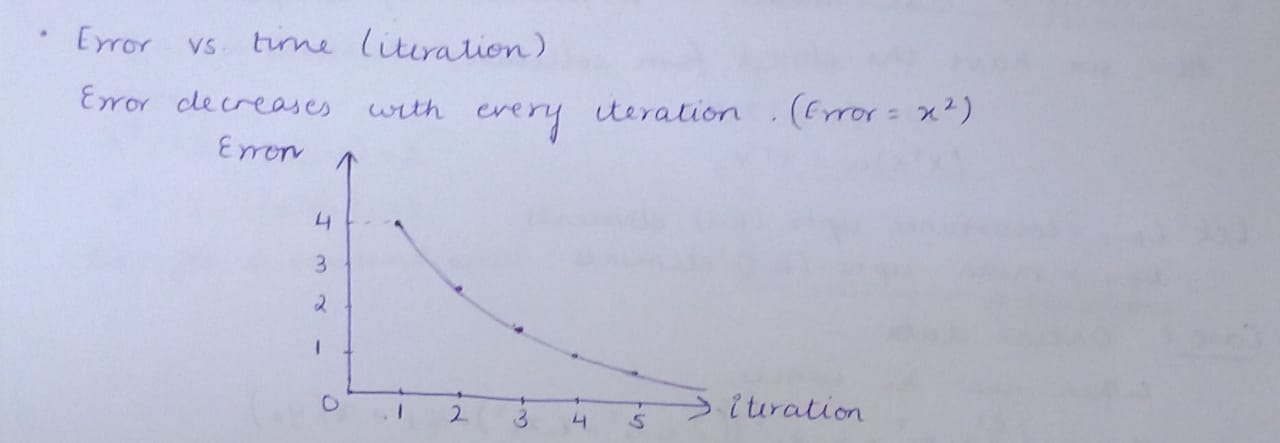 • Error vs. time (iteration)
Error decreases with every iteration. (Error = x²)
Error
4
3
2
1
0
1 2 3 4 5 iteration